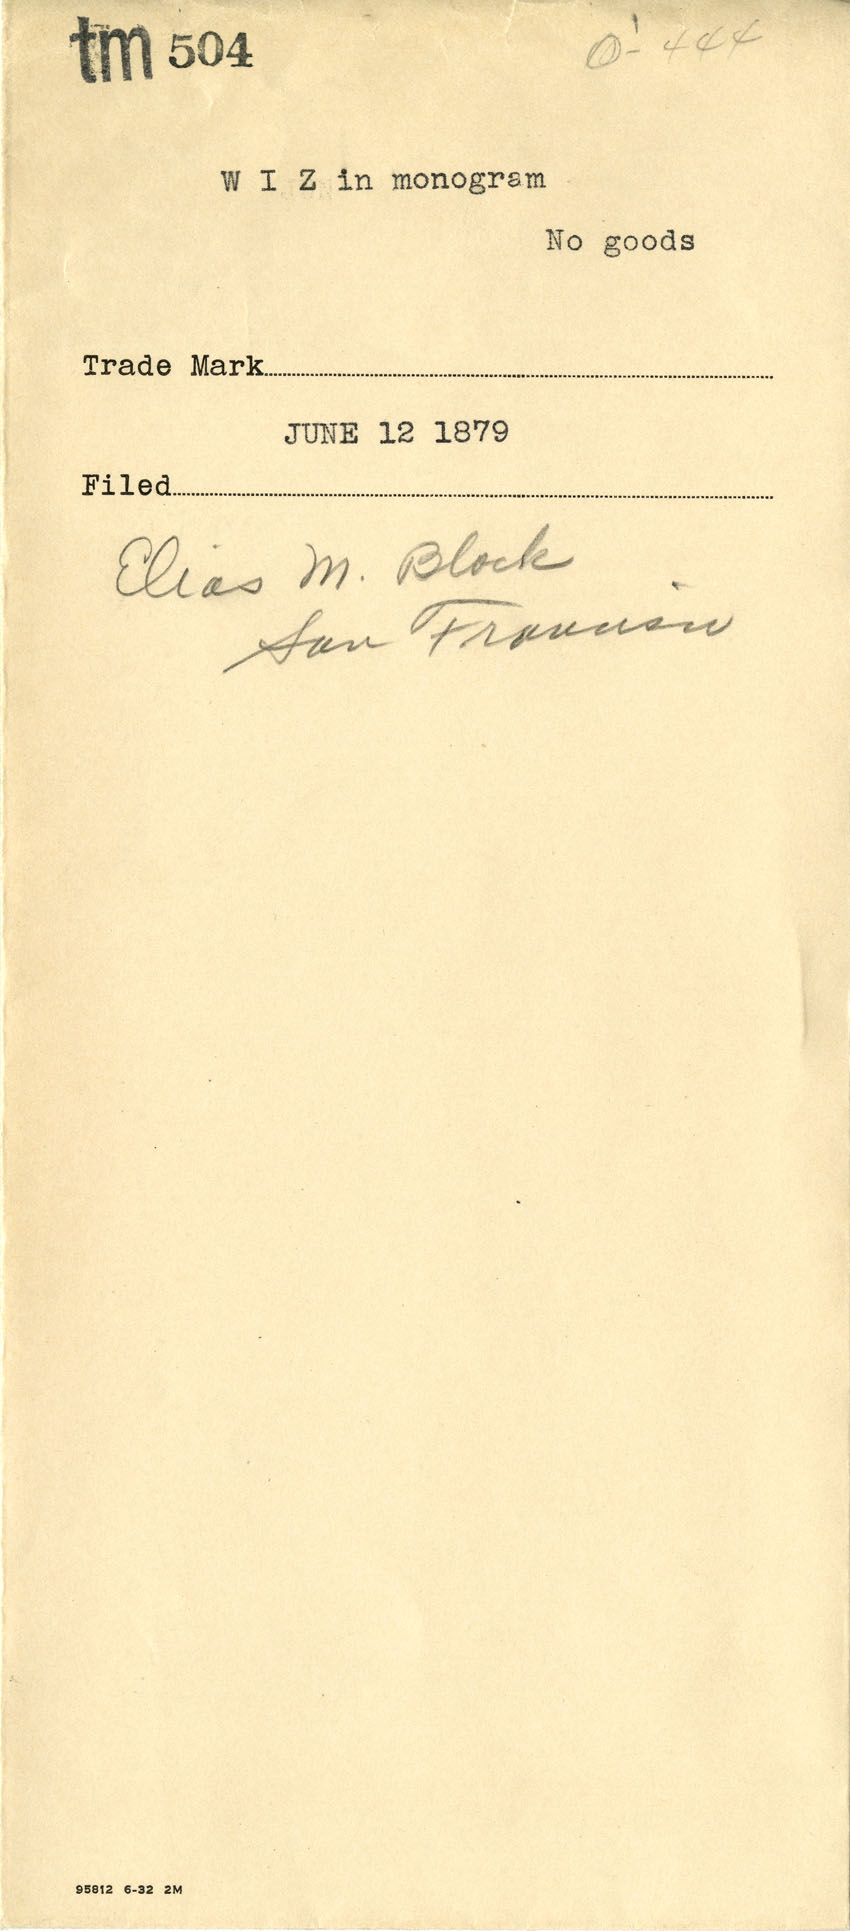 tm 504
O- 444
W I Z in monogram
No goods
Trade Mark
JUNE 12 1879
Filed
Elias M. Block
San Francisco
95812 6-32 2M